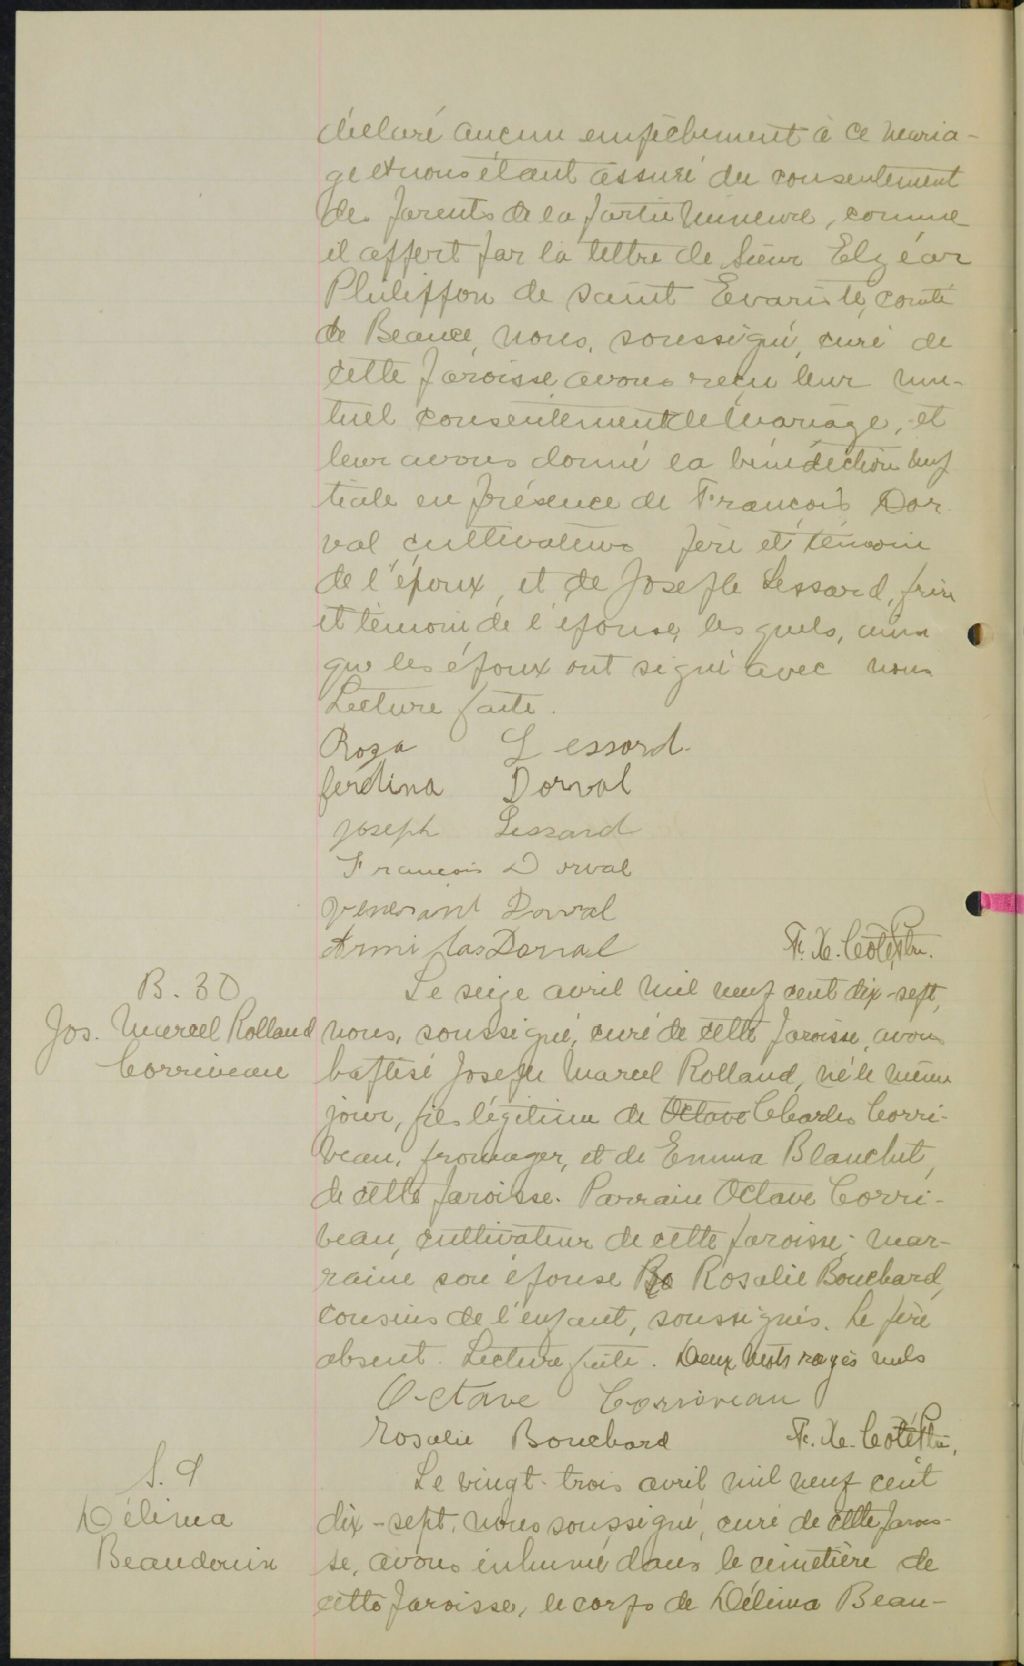 déclaré aucun empêchement à ce maria-
ge et nous étant assuré du consentement
des parents de la partie mineure, comme
il appert par la lettre de Sieur Elzéar
Philippon de Saint Evariste, comté
de Beauce, nous, soussigné, curé de
cette paroisse avons reçu leur mu-
tuel consentement de mariage, et
leur avons donné la bénédiction nup
tiale en présence de François Dor
val cultivateur père et témoin
de l'époux, et de Joseph Lessard, frère
et témoin de l'épouse, les quels, ainsi
que les époux ont signé avec nous
Lecture faite.
Roza Lessard
ferdina Dorval
Joseph Lessard
Francois Dorval
Dorval
Dorval F. X. Côté, Ptre.
B. 30
Jos. Marcel Rolland
Corriveau
Le seize avril mil neuf cent dix-sept,
nous, soussigné, curé de cette paroisse, avons
baptisé Joseph Marcel Rolland, né le même
jour, fils légitime de Octave Charles Corri-
veau, fromager, et de Emma Blanchet,
de cette paroisse. Parrain Octave Corri-
veau, cultivateur de cette paroisse; mar-
raine son épouse Ro Rosalie Bouchard,
cousins de l'enfant, soussignés. Le père
absent. Lecture faite. Deux mots rayés nuls
Octave Corriveau
Rosalie Bouchard F. X. Côté Ptre.
S. 9
Délima
Beaudouin
Le vingt-trois avril mil neuf cent
dix-sept, nous soussigné, curé de cette parois-
se, avons inhumé dans le cimetière de
cette paroisse, le corps de Délima Beau-